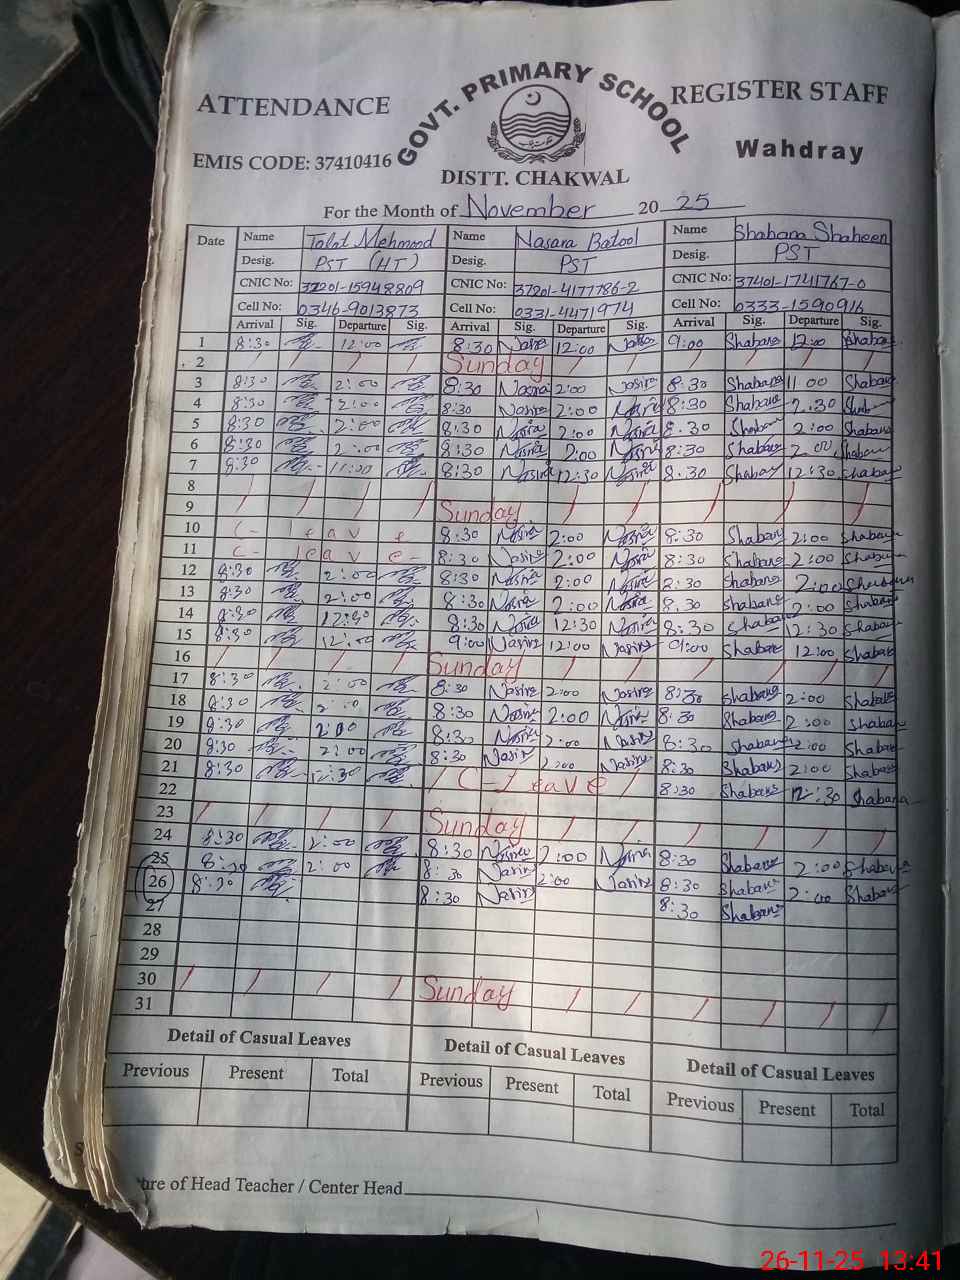 GOVT. PRIMARY SCHOOL
ATTENDANCE REGISTER STAFF
EMIS CODE: 37410416 Wahdray
DISTT. CHAKWAL
For the Month of November 20 25
Date Name Talat Mehmood Name Nasara Batool Name Shabana Shaheen
Desig. PST (HT) Desig. PST Desig. PST
CNIC No: 37201-15948809 CNIC No: 37201-4177786-2 CNIC No: 37401-1741767-0
Cell No: 0346-9013873 Cell No: 0331-4471974 Cell No: 0333-1590916
Arrival Sig. Departure Sig. Arrival Sig. Departure Sig. Arrival Sig. Departure Sig.
1 8:30 12:00 8:30 Nasira 12:00 Nasira 9:00 Shabana 12:00 Shabana
2 Sunday
3 8:30 2:00 8:30 Nasira 2:00 Nasira 8:30 Shabana 11:00 Shabana
4 8:30 2:00 8:30 Nasira 2:00 Nasira 8:30 Shabana 2:30
5 8:30 2:00 8:30 Nasira 2:00 Nasira 8:30 Shabana 2:00 Shabana
6 8:30 2:00 8:30 Nasira 2:00 Nasira 8:30 Shabana 2:00 Shabana
7 8:30 11:00 8:30 Nasira 12:30 Nasira 8:30 Shabana 12:30 Shabana
8
9 Sunday
10 C-leave 8:30 Nasira 2:00 Nasira 8:30 Shabana 2:00 Shabana
11 C-leave 8:30 Nasira 2:00 Nasira 8:30 Shabana 2:00 Shabana
12 8:30 2:00 8:30 Nasira 2:00 Nasira 8:30 Shabana 2:00 Shabana
13 8:30 2:00 8:30 Nasira 2:00 Nasira 8:30 Shabana 2:00 Shabana
14 8:30 12:30 8:30 Nasira 12:30 Nasira 8:30 Shabana 12:30 Shabana
15 8:30 12:00 9:00 Nasira 12:00 Nasira 9:00 Shabana 12:00 Shabana
16 Sunday
17 8:30 2:00 8:30 Nasira 2:00 Nasira 8:30 Shabana 2:00 Shabana
18 8:30 2:00 8:30 Nasira 2:00 Nasira 8:30 Shabana 2:00 Shabana
19 8:30 2:00 8:30 Nasira 2:00 Nasira 8:30 Shabana 2:00 Shabana
20 8:30 2:00 8:30 Nasira 2:00 Nasira 8:30 Shabana 2:00 Shabana
21 8:30 12:30 C-Leave 8:30 Shabana 12:30 Shabana
22
23 Sunday
24 8:30 2:00 8:30 Nasira 2:00 Nasira 8:30 Shabana 2:00 Shabana
25 8:30 2:00 8:30 Nasira 2:00 Nasira 8:30 Shabana 2:00 Shabana
26 8:30 8:30 Nasira 8:30 Shabana
27
28
29
30 Sunday
31
Detail of Casual Leaves Detail of Casual Leaves Detail of Casual Leaves
Previous Present Total Previous Present Total Previous Present Total
of Head Teacher / Center Head
26-11-25 13:41